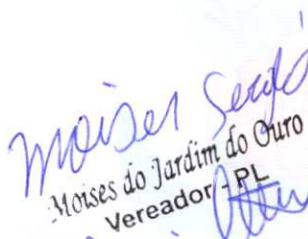 Moises Sergio
Moises do Jardim do Ouro
Vereador - PL